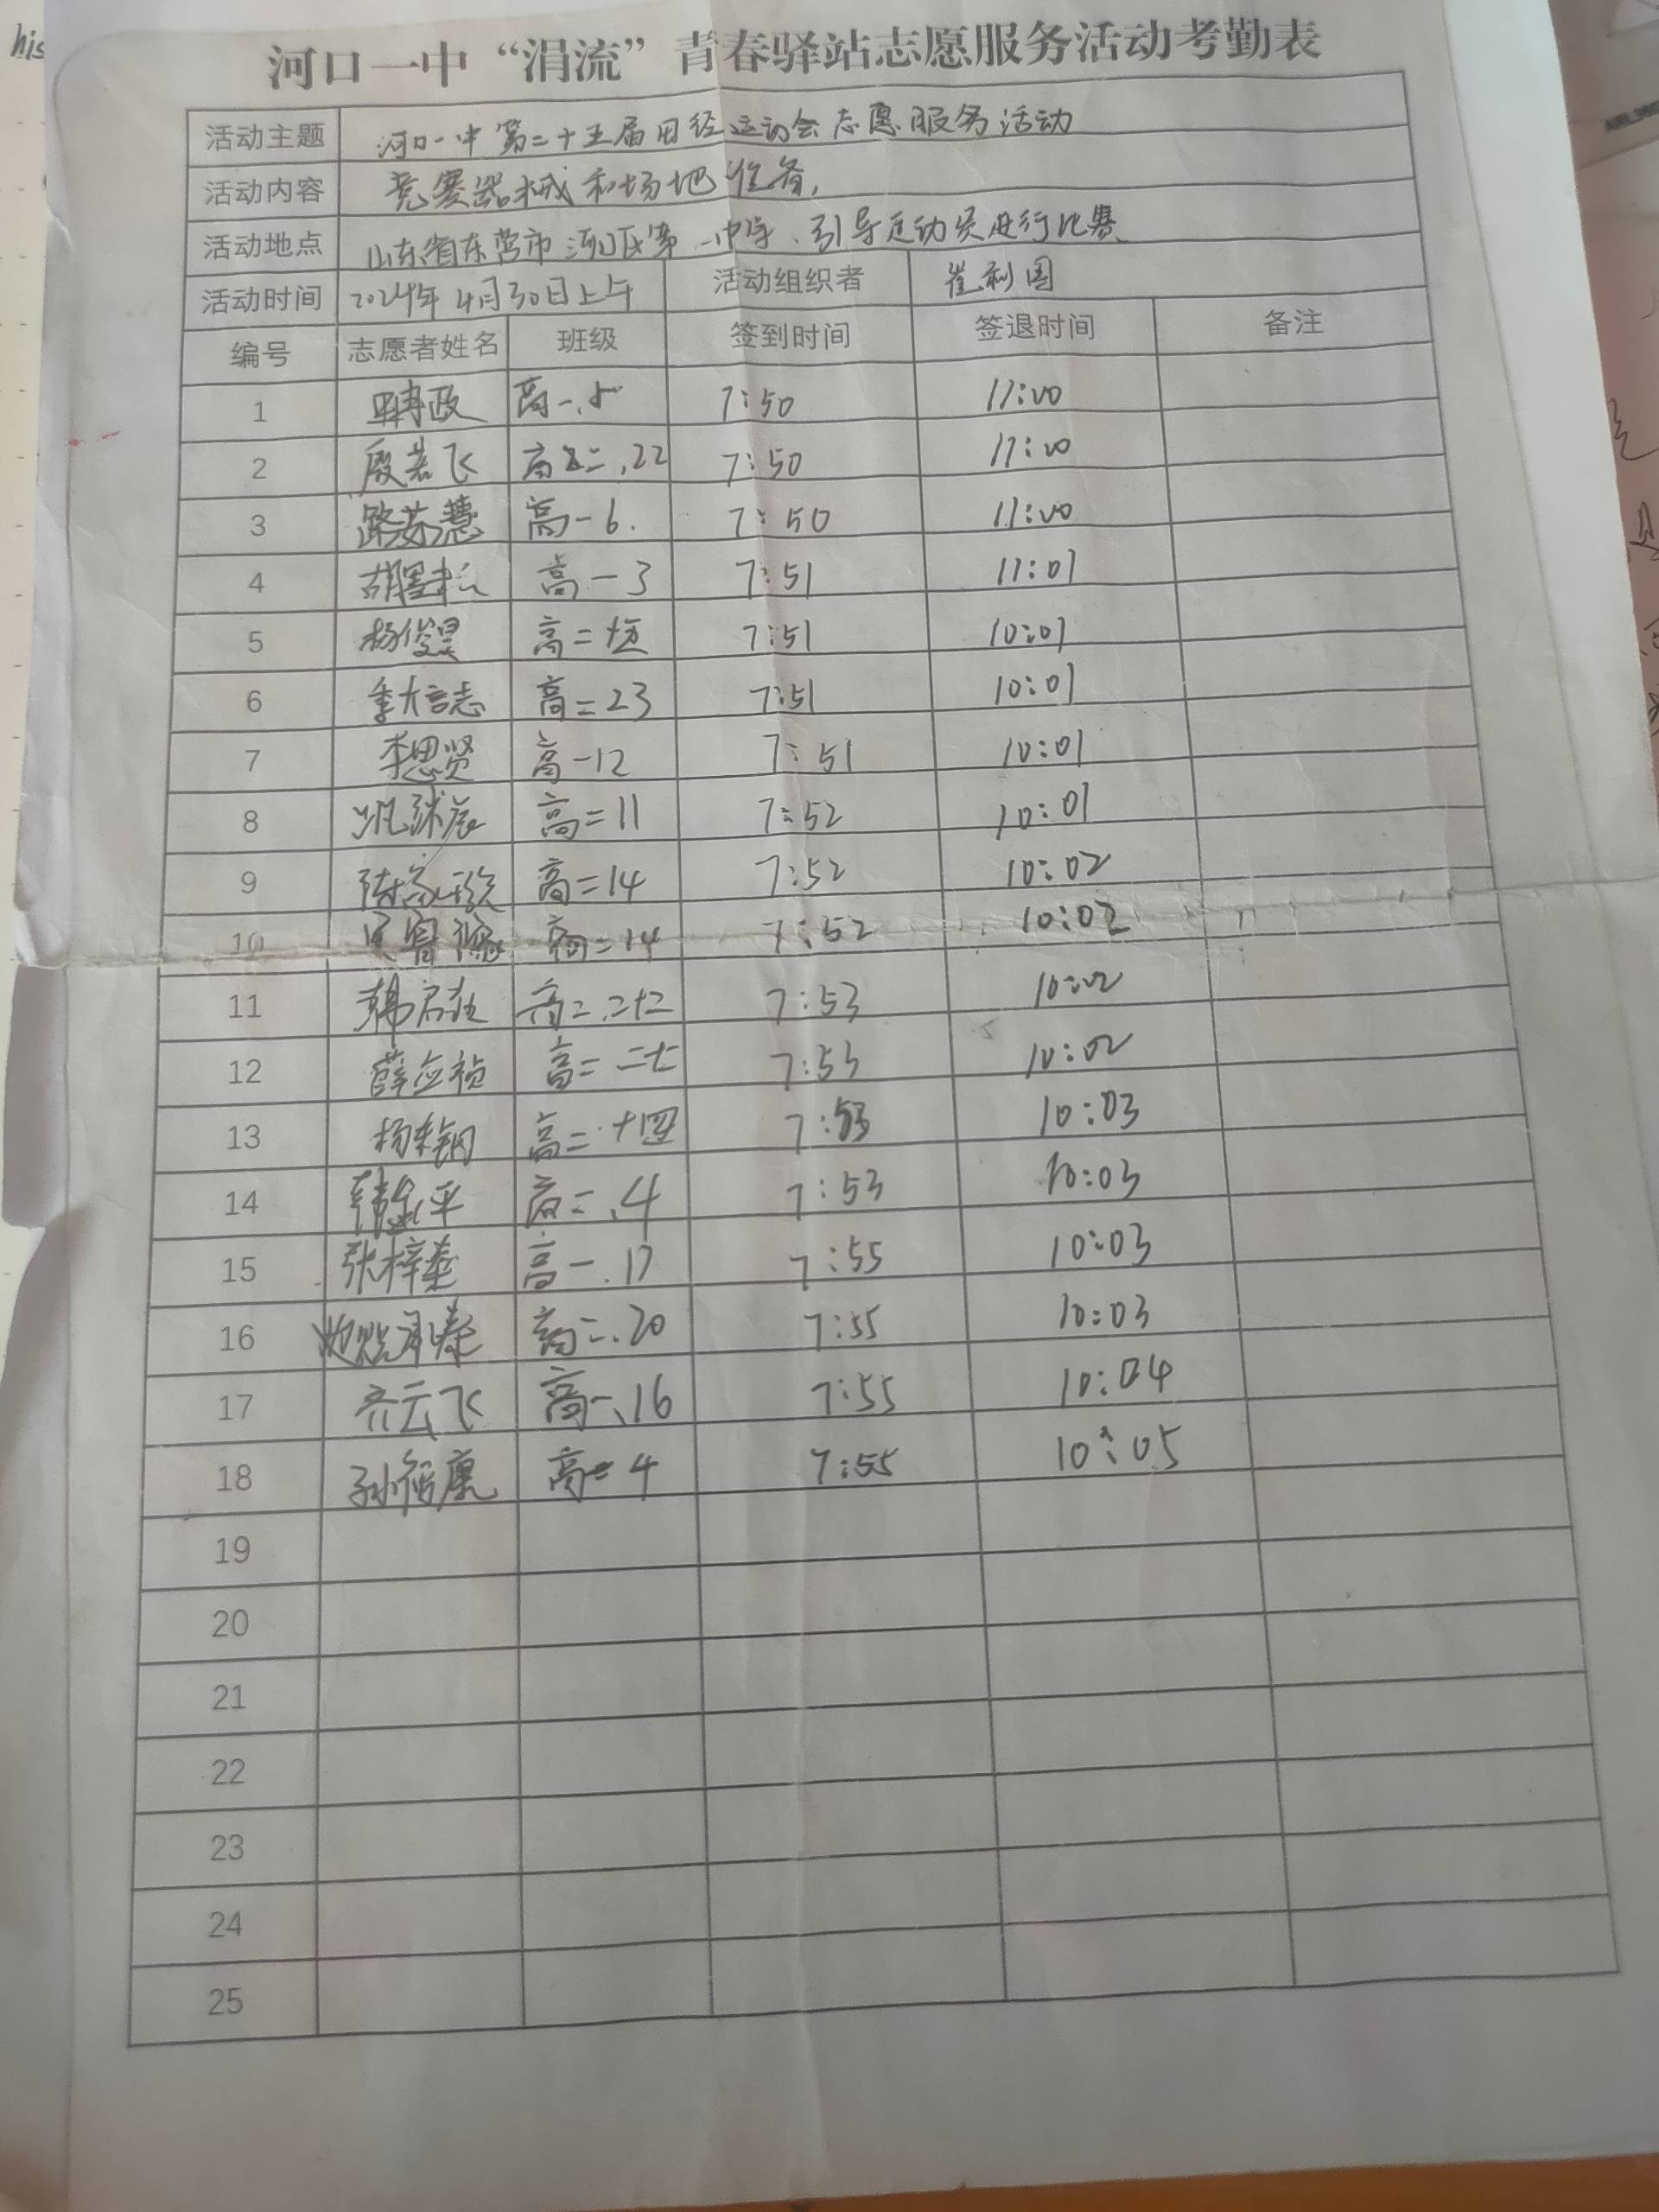 his
河口一中“涓流”青春驿站志愿服务活动考勤表
活动主题 河口一中第二十五届田径运动会志愿服务活动
活动内容 竞赛器械和场地准备,
活动地点 山东省东营市河口区第一中学、引导运动员进行比赛
活动时间 2024年4月30日上午 活动组织者 崔利国
编号 志愿者姓名 班级 签到时间 签退时间 备注
1 高一.5 7:50 11:00
2 殷若飞 高二.22 7:50 11:00
3 路苏慧 高一6. 7:50 11:00
4 高一3 7:51 11:01
5 杨俊昊 高二十五 7:51 10:01
6 高二23 7:51 10:01
7 李思贤 高一12 7:51 10:01
8 高二11 7:52 10:01
9 高二14 7:52 10:02
10 高二14 7:52 10:02
11 高二.二十二 7:53 10:02
12 薛应祯 高二 7:53 10:02
13 高二.十四 7:53 10:03
14 高二.4 7:53 10:03
15 张梓泰 高一.17 7:55 10:03
16 高二.20 7:55 10:03
17 齐云飞 高一、16 7:55 10:04
18 高二4 7:55 10:05
19
20
21
22
23
24
25